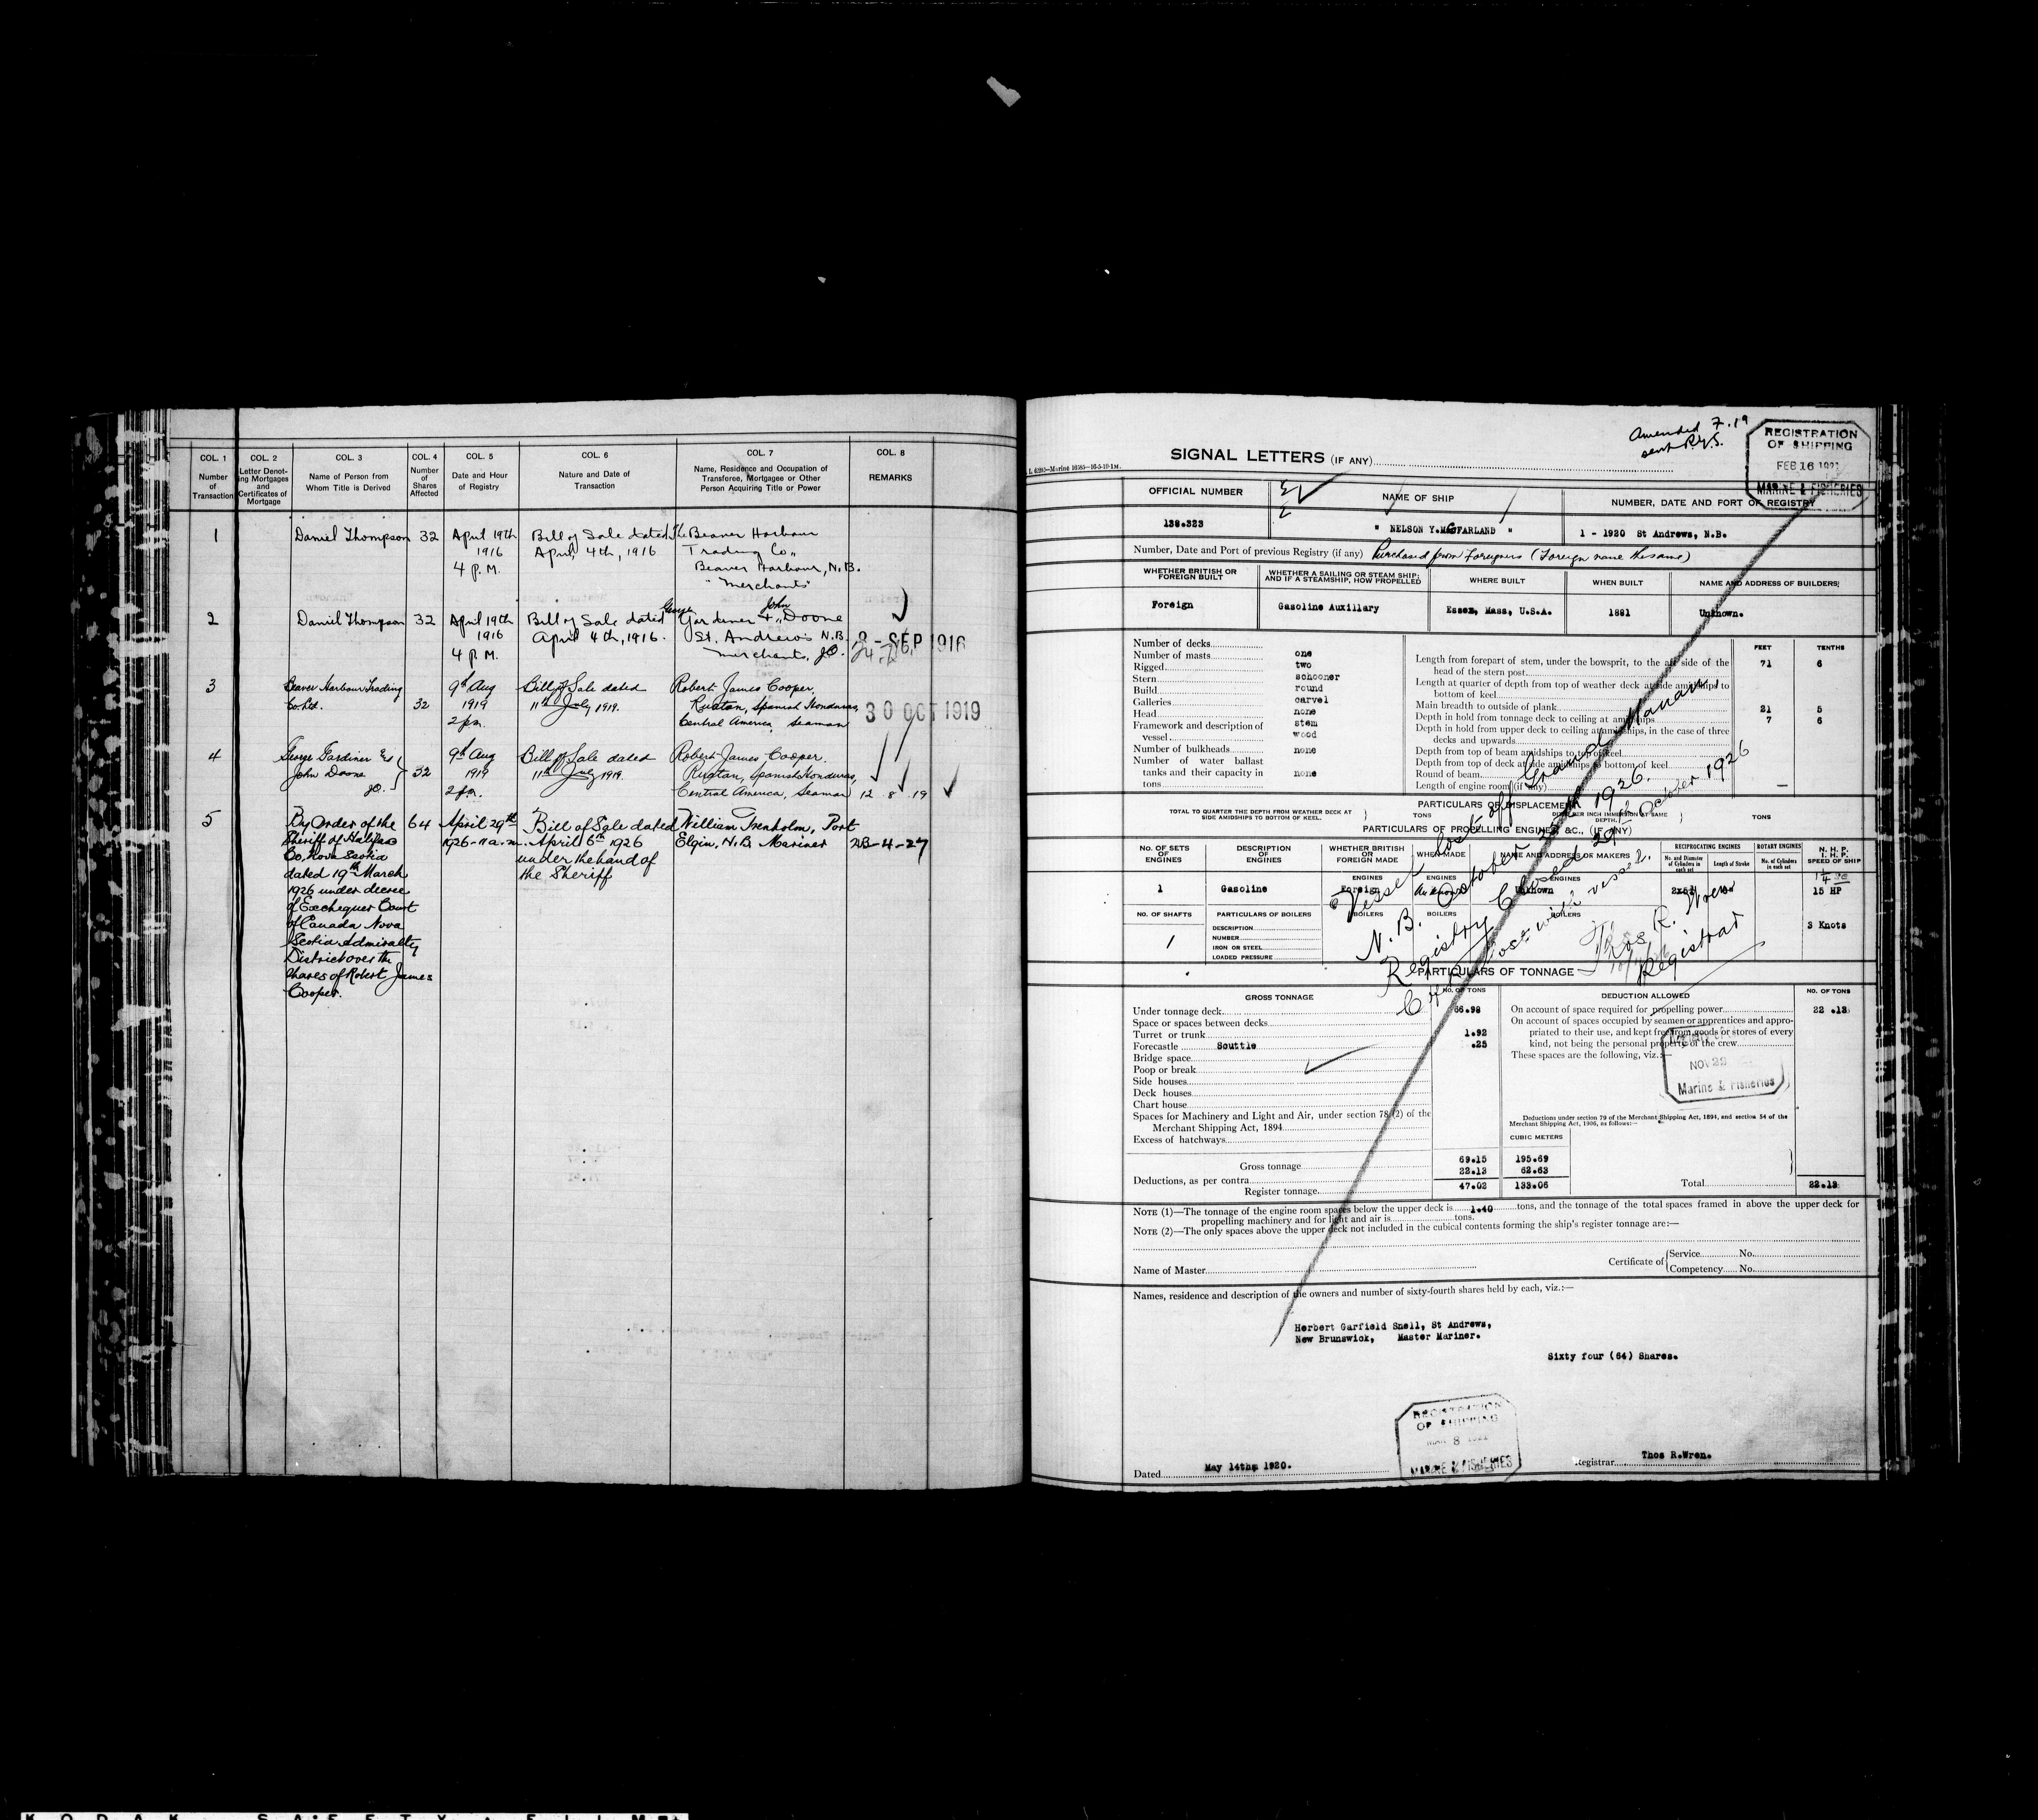 COL. 1
Number
of
Transaction
COL. 2
Letter Denot-
ing Mortgages
and
Certificates of
Mortgage
COL. 3
Name of Person from
Whom Title is Derived
COL. 4
Number
of
Shares
Affected
COL. 5
Date and Hour
of Registry
COL. 6
Nature and Date of
Transaction
COL. 7
Name, Residence and Occupation of
Transferee, Mortgagee or Other
Person Acquiring Title or Power
COL. 8
REMARKS
1
Daniel Thompson
32
April 19th
1916
4 P.M.
Bill of Sale dated
April, 4th, 1916
The Beaver Harbour
Trading Co,,
Beaver Harbour, N.B.
"Merchants"
2
Daniel Thompson
32
April 19th
1916
4 P.M.
Bill of Sale dated
April 4th, 1916.
George John
Gardiner & Doone
St. Andrews N.B.
Merchants, JO.
2-SEP 1916
3
Beaver Harbour Trading
Co. Ltd.
32
9th Aug
1919
2 pm.
Bill of Sale dated
11th July 1919.
Robert James Cooper,
Ruatan, Spanish Honduras,
Central America, Seaman
30 OCT 1919
4
George Gardiner Esq
John Doone
JO.
32
9th Aug
1919
2 pm.
Bill of Sale dated
11th July 1919.
Robert James Cooper,
Ruatan, Spanish Honduras,
Central America, Seaman
12 8 19
5
By Order of the
Sheriff of Halifax
Co. Nova Scotia
dated 19th March
1926 under decree
of Exchequer Court
of Canada Nova
Scotia Admiralty
District over the
shares of Robert James
Cooper.
64
April 29th
1926-11 a.m.
Bill of Sale dated
April 6th 1926
under the hand of
the Sheriff
William Trenholm, Port
Elgin, N.B. Mariner
23-4-27
Amended 7.19
sent R.G.S.
REGISTRATION
OF SHIPPING
FEB 16 1921
MARINE & FISHERIES
SIGNAL LETTERS (IF ANY)
OFFICIAL NUMBER
138.323
NAME OF SHIP
" NELSON Y.McFARLAND "
NUMBER, DATE AND PORT OF REGISTRY
1 - 1920 St Andrews, N.B.
Number, Date and Port of previous Registry (if any) Purchased from Foreigners (Foreign name the same)
WHETHER BRITISH OR
FOREIGN BUILT
Foreign
WHETHER A SAILING OR STEAM SHIP;
AND IF A STEAMSHIP, HOW PROPELLED
Gasoline Auxillary
WHERE BUILT
Essex, Mass, U.S.A.
WHEN BUILT
1881
NAME AND ADDRESS OF BUILDERS
Unknown.
Number of decks
one
Number of masts
two
Rigged
schooner
Stern
round
Build
carvel
Galleries
none
Head
stem
Framework and description of
vessel
wood
Number of bulkheads
none
Number of water ballast
tanks and their capacity in
tons
none
FEET
TENTHS
Length from forepart of stem, under the bowsprit, to the aft side of the
head of the stern post
71
6
Length at quarter of depth from top of weather deck at side amidships to
bottom of keel
Main breadth to outside of plank
21
5
Depth in hold from tonnage deck to ceiling at amidships
7
6
Depth in hold from upper deck to ceiling at amidships, in the case of three
decks and upwards
Depth from top of beam amidships to top of keel
Depth from top of deck at side amidships to bottom of keel
Round of beam
Length of engine room (if any)
PARTICULARS OF DISPLACEMENT
TOTAL TO QUARTER THE DEPTH FROM WEATHER DECK AT
SIDE AMIDSHIPS TO BOTTOM OF KEEL
TONS
TONS
PARTICULARS OF PROPELLING ENGINES &C., (IF ANY)
NO. OF SETS
OF
ENGINES
1
DESCRIPTION
OF
ENGINES
Gasoline
WHETHER BRITISH
OR
FOREIGN MADE
ENGINES
Foreign
BOILERS
WHEN MADE
ENGINES
Unknown
BOILERS
NAME AND ADDRESS OF MAKERS
ENGINES
Unknown
BOILERS
RECIPROCATING ENGINES
No. and Diameter
of Cylinders in
each set
Length of Stroke
ROTARY ENGINES
No. of Cylinders
in each set
N. H. P.
I. H. P.
SPEED OF SHIP
15 HP
3 Knots
NO. OF SHAFTS
1
PARTICULARS OF BOILERS
DESCRIPTION
NUMBER
IRON OR STEEL
LOADED PRESSURE
Vessel lost off Grand Manan,
N.B. October 1926.
Registry Closed 29th October 1926
lost with vessel.
Thos R. Wren
Registrar
PARTICULARS OF TONNAGE
GROSS TONNAGE
NO. OF TONS
Under tonnage deck
66.98
Space or spaces between decks
Turret or trunk
1.92
Forecastle Scuttle
.25
Bridge space
Poop or break
Side houses
Deck houses
Chart house
Spaces for Machinery and Light and Air, under section 78 (2) of the
Merchant Shipping Act, 1894
Excess of hatchways
CUBIC METERS
Gross tonnage
69.15
195.69
Deductions, as per contra
22.13
62.63
Register tonnage
47.02
133.06
DEDUCTION ALLOWED
NO. OF TONS
On account of space required for propelling power
22 .13
On account of spaces occupied by seamen or apprentices and appro-
priated to their use, and kept free from goods or stores of every
kind, not being the personal property of the crew
These spaces are the following, viz.:—
NOV 22
Marine & Fisheries
Deductions under section 79 of the Merchant Shipping Act, 1894, and section 54 of the
Merchant Shipping Act, 1906, as follows:—
Total
22.13
NOTE (1)—The tonnage of the engine room spaces below the upper deck is 1.40 tons, and the tonnage of the total spaces framed in above the upper deck for
propelling machinery and for light and air is tons.
NOTE (2)—The only spaces above the upper deck not included in the cubical contents forming the ship's register tonnage are:—
Name of Master
Certificate of
Service No.
Competency No.
Names, residence and description of the owners and number of sixty-fourth shares held by each, viz.:—
Herbert Garfield Snell, St Andrews,
New Brunswick, Master Mariner.
Sixty four (64) Shares.
REGISTRATION
OF SHIPPING
8
MARINE & FISHERIES
Dated May 14th, 1920.
Registrar Thos R.Wren.
KODAK SAFETY FILM